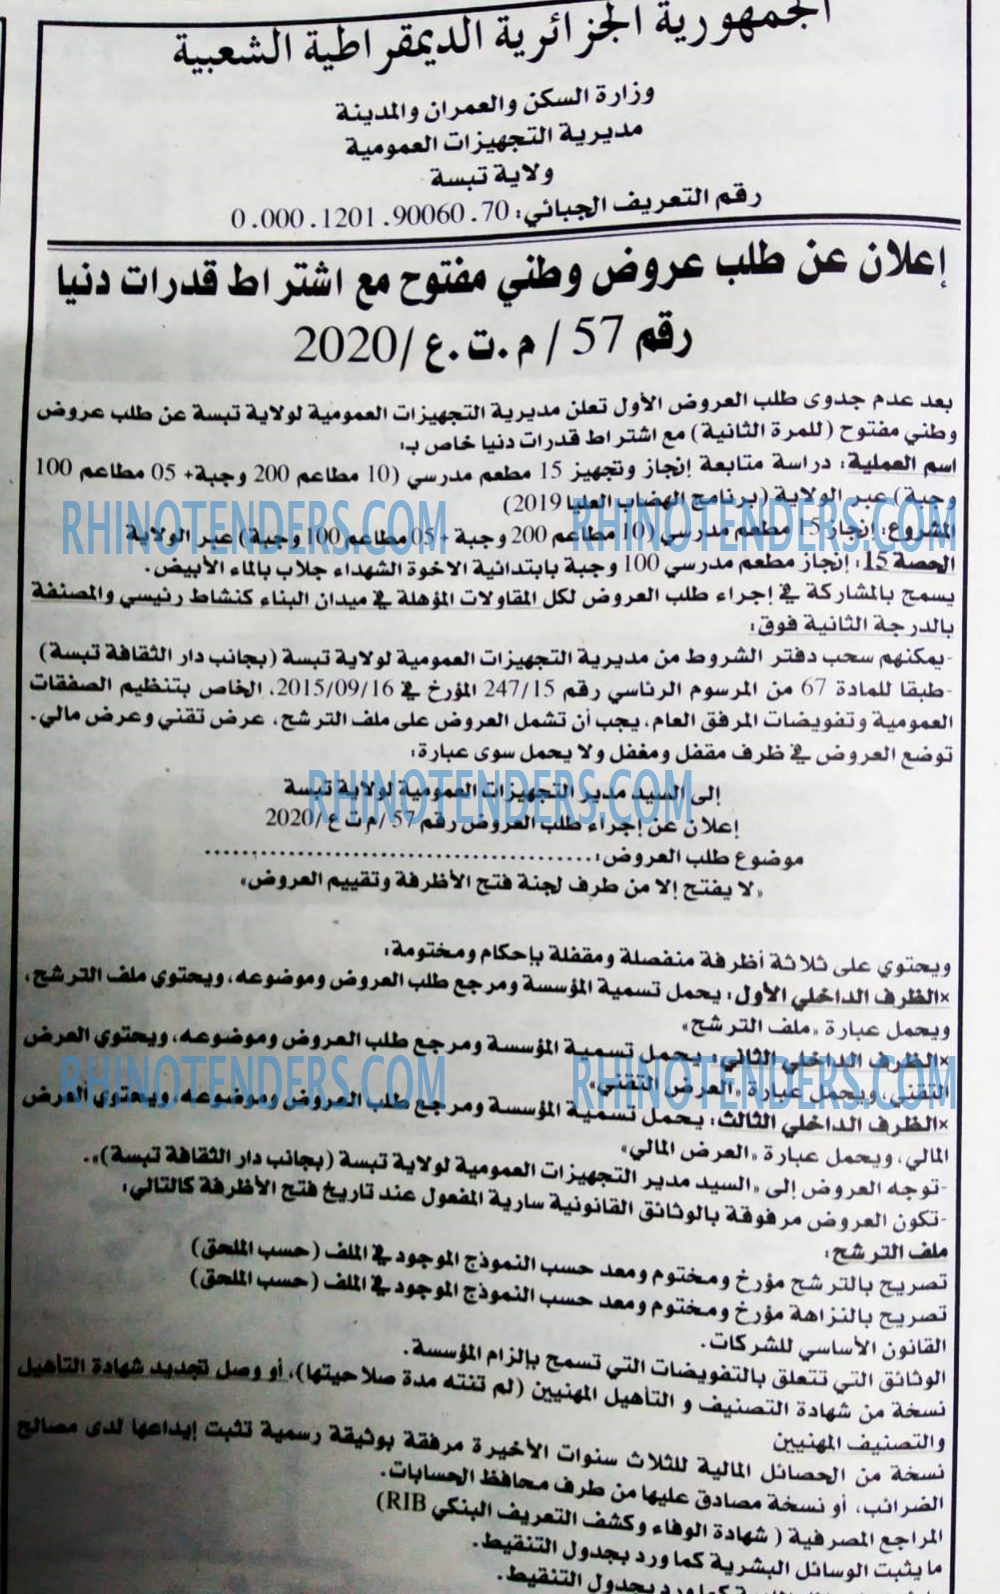 الجمهورية الجزائرية الديمقراطية الشعبية
وزارة السكن والعمران والمدينة
مديرية التجهيزات العمومية
ولاية تبسة
رقم التعريف الجبائي: 0.000.1201.90060.70
إعلان عن طلب عروض وطني مفتوح مع اشتراط قدرات دنيا
رقم 57 / م.ت.ع /2020
بعد عدم جدوى طلب العروض الأول تعلن مديرية التجهيزات العمومية لولاية تبسة عن طلب عروض
وطني مفتوح (للمرة الثانية) مع اشتراط قدرات دنيا خاص بـ:
اسم العملية: دراسة متابعة إنجاز وتجهيز 15 مطعم مدرسي (10 مطاعم 200 وجبة+ 05 مطاعم 100
وجبة) عبر الولاية (برنامج الهضاب العليا 2019)
RHINOTENDERS.COM RHINOTENDERS.COM
المشروع: إنجاز 15 مطعم مدرسي (10 مطاعم 200 وجبة +05 مطاعم 100 وجبة) عبر الولاية
الحصة 15: إنجاز مطعم مدرسي 100 وجبة بابتدائية الاخوة الشهداء جلاب بالماء الأبيض.
يسمح بالمشاركة في إجراء طلب العروض لكل المقاولات المؤهلة في ميدان البناء كنشاط رئيسي والمصنفة
بالدرجة الثانية فوق:
-يمكنهم سحب دفتر الشروط من مديرية التجهيزات العمومية لولاية تبسة (بجانب دار الثقافة تبسة)
-طبقا للمادة 67 من المرسوم الرئاسي رقم 247/15 المؤرخ في 2015/09/16، الخاص بتنظيم الصفقات
العمومية وتفويضات المرفق العام، يجب أن تشمل العروض على ملف الترشح، عرض تقني وعرض مالي.
توضع العروض في ظرف مقفل ومغفل ولا يحمل سوى عبارة:
إلى السيد مدير التجهيزات العمومية لولاية تبسة
RHINOTENDERS.COM
إعلان عن إجراء طلب العروض رقم 57 /م ت ع /2020
موضوع طلب العروض:......................................
«لا يفتح إلا من طرف لجنة فتح الأظرفة وتقييم العروض»
ويحتوي على ثلاثة أظرفة منفصلة ومقفلة بإحكام ومختومة:
×الظرف الداخلي الأول: يحمل تسمية المؤسسة ومرجع طلب العروض وموضوعه، ويحتوي ملف الترشح،
ويحمل عبارة «ملف الترشح»
×الظرف الداخلي الثاني: يحمل تسمية المؤسسة ومرجع طلب العروض وموضوعه، ويحتوي العرض
RHINOTENDERS.COM RHINOTENDERS.COM
التقني، ويحمل عبارة «العرض التقني»
×الظرف الداخلي الثالث: يحمل تسمية المؤسسة ومرجع طلب العروض وموضوعه، ويحتوي العرض
المالي، ويحمل عبارة «العرض المالي»
-توجه العروض إلى «السيد مدير التجهيزات العمومية لولاية تبسة (بجانب دار الثقافة تبسة)».
-تكون العروض مرفوقة بالوثائق القانونية سارية المفعول عند تاريخ فتح الأظرفة كالتالي:
ملف الترشح:
تصريح بالترشح مؤرخ ومختوم ومعد حسب النموذج الموجود في الملف (حسب الملحق)
تصريح بالنزاهة مؤرخ ومختوم ومعد حسب النموذج الموجود في الملف (حسب الملحق)
القانون الأساسي للشركات.
الوثائق التي تتعلق بالتفويضات التي تسمح بإلزام المؤسسة.
نسخة من شهادة التصنيف و التأهيل المهنيين (لم تنته مدة صلاحيتها)، أو وصل تجديد شهادة التأهيل
والتصنيف المهنيين
نسخة من الحصائل المالية للثلاث سنوات الأخيرة مرفقة بوثيقة رسمية تثبت إيداعها لدى مصالح
الضرائب، أو نسخة مصادق عليها من طرف محافظ الحسابات.
المراجع المصرفية ( شهادة الوفاء وكشف التعريف البنكي RIB)
ما يثبت الوسائل البشرية كما ورد بجدول التنقيط.
كما ورد بجدول التنقيط.